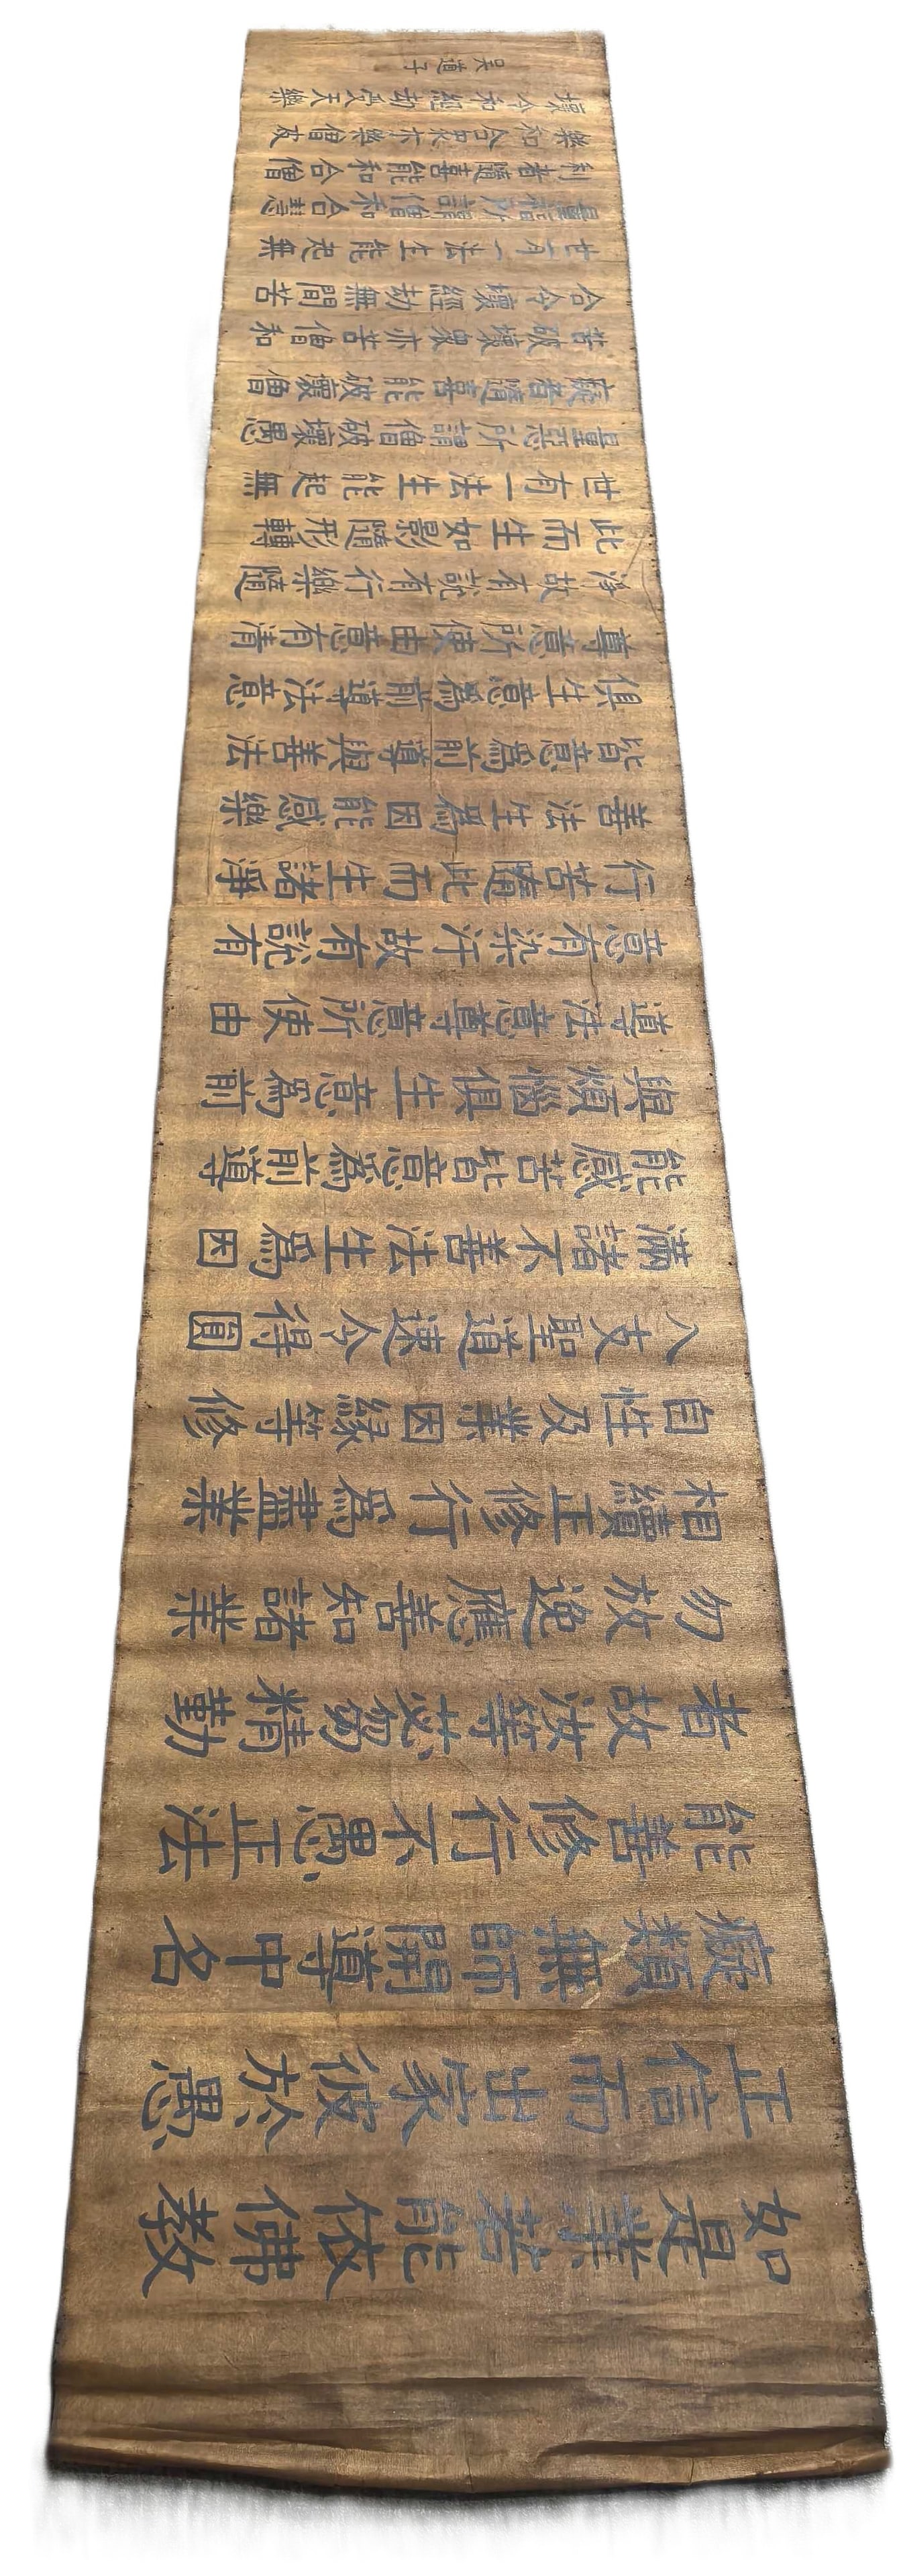 如是業若能依佛教
正信而出家彼於愚
癡類無師開導中名
能善修行不愚正法
者故汝等苾芻精勤
勿放逸應善知諸業
相續正修行爲盡業
自性及業因緣等修
八支聖道速令得圓
滿諸不善法生爲因
能感苦皆意爲前導
與煩惱俱生意爲前
導法意尊意所使由
意有染汙故有說有
行苦隨此而生諸淨
善法生爲因能感樂
皆意爲前導與善法
俱生意爲前導法意
尊意所使由意有清
淨故有說有行樂隨
此而生如影隨形轉
世有一法生能起無
量惡所謂僧破壞愚
癡者隨喜能破壞僧
苦破壞衆亦苦僧和
合令壞經劫無間苦
世有一法生能起無
量福所謂僧和合慧
利者隨喜能和合僧
樂和合衆亦樂僧友
壞令和經劫受天樂
吴道子